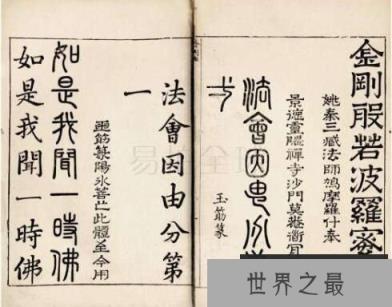 金剛般若波羅蜜
姚秦三藏法師鳩摩羅什奉
景德靈隱禪寺沙門莫菴道肎
法會因由分
弌
玉筯篆
法會因由分第
一
玉筯篆陽氷善于此體至今用
如是我聞一時佛
如是我聞一時佛
世界之最